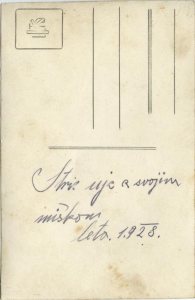 Stric ujc a svojim
miškom
leta. 1928.